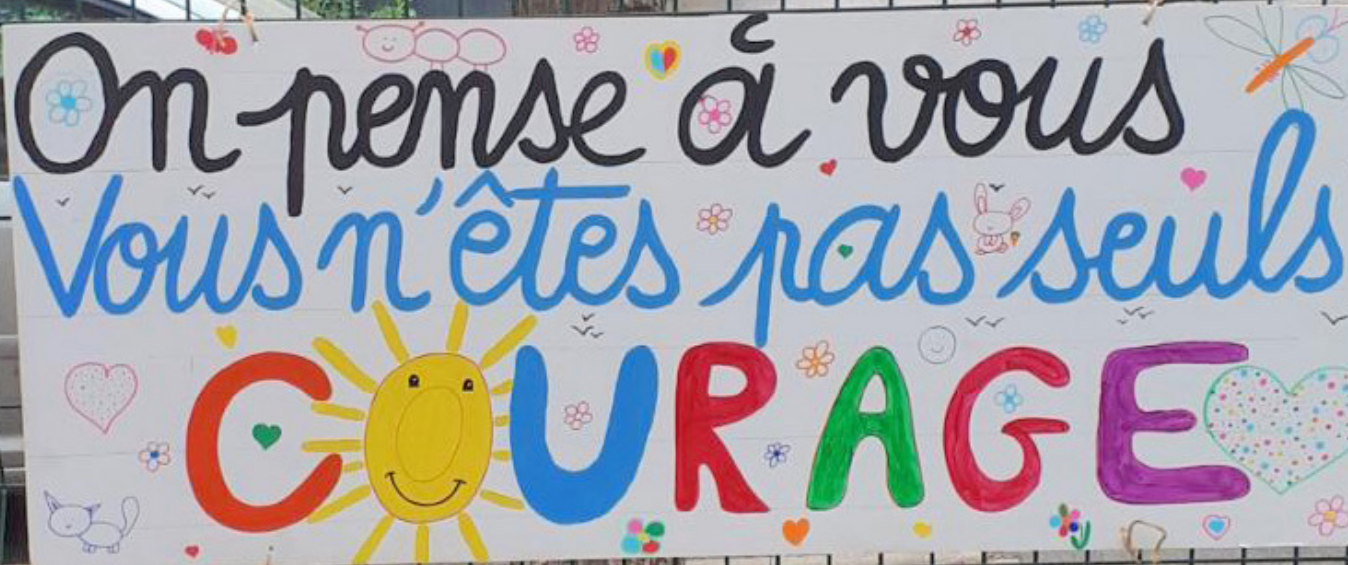 On pense à vous
Vous n'êtes pas seuls
COURAGE